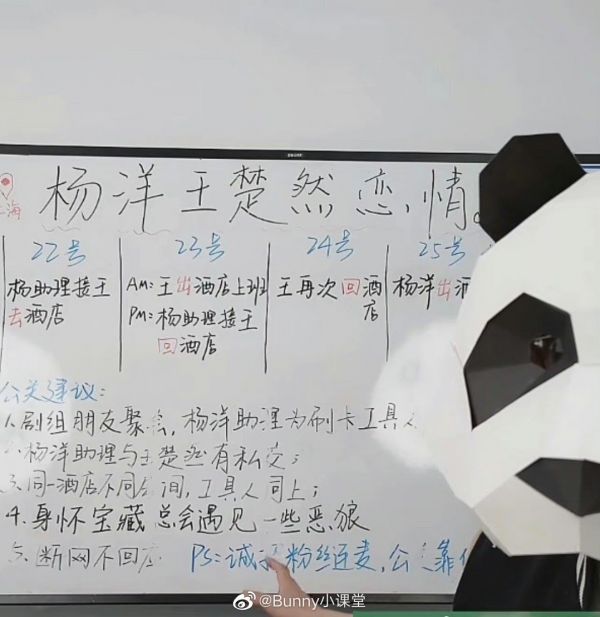 海
杨洋王楚然恋情
22号 23号 24号 25号
杨助理接王 AM:王出酒店上班 王再次回酒 杨洋出酒
去酒店 PM:杨助理接王 店
回酒店
公关建议:
1.剧组朋友聚会,杨洋助理为刷卡工具人
杨洋助理与王楚然有私交;
同一酒店不同房间,工具人同上;
4.身怀宝藏总会遇见一些恶狼
断网不回应 PS:诚 粉丝连麦,公 靠
@Bunny小课堂